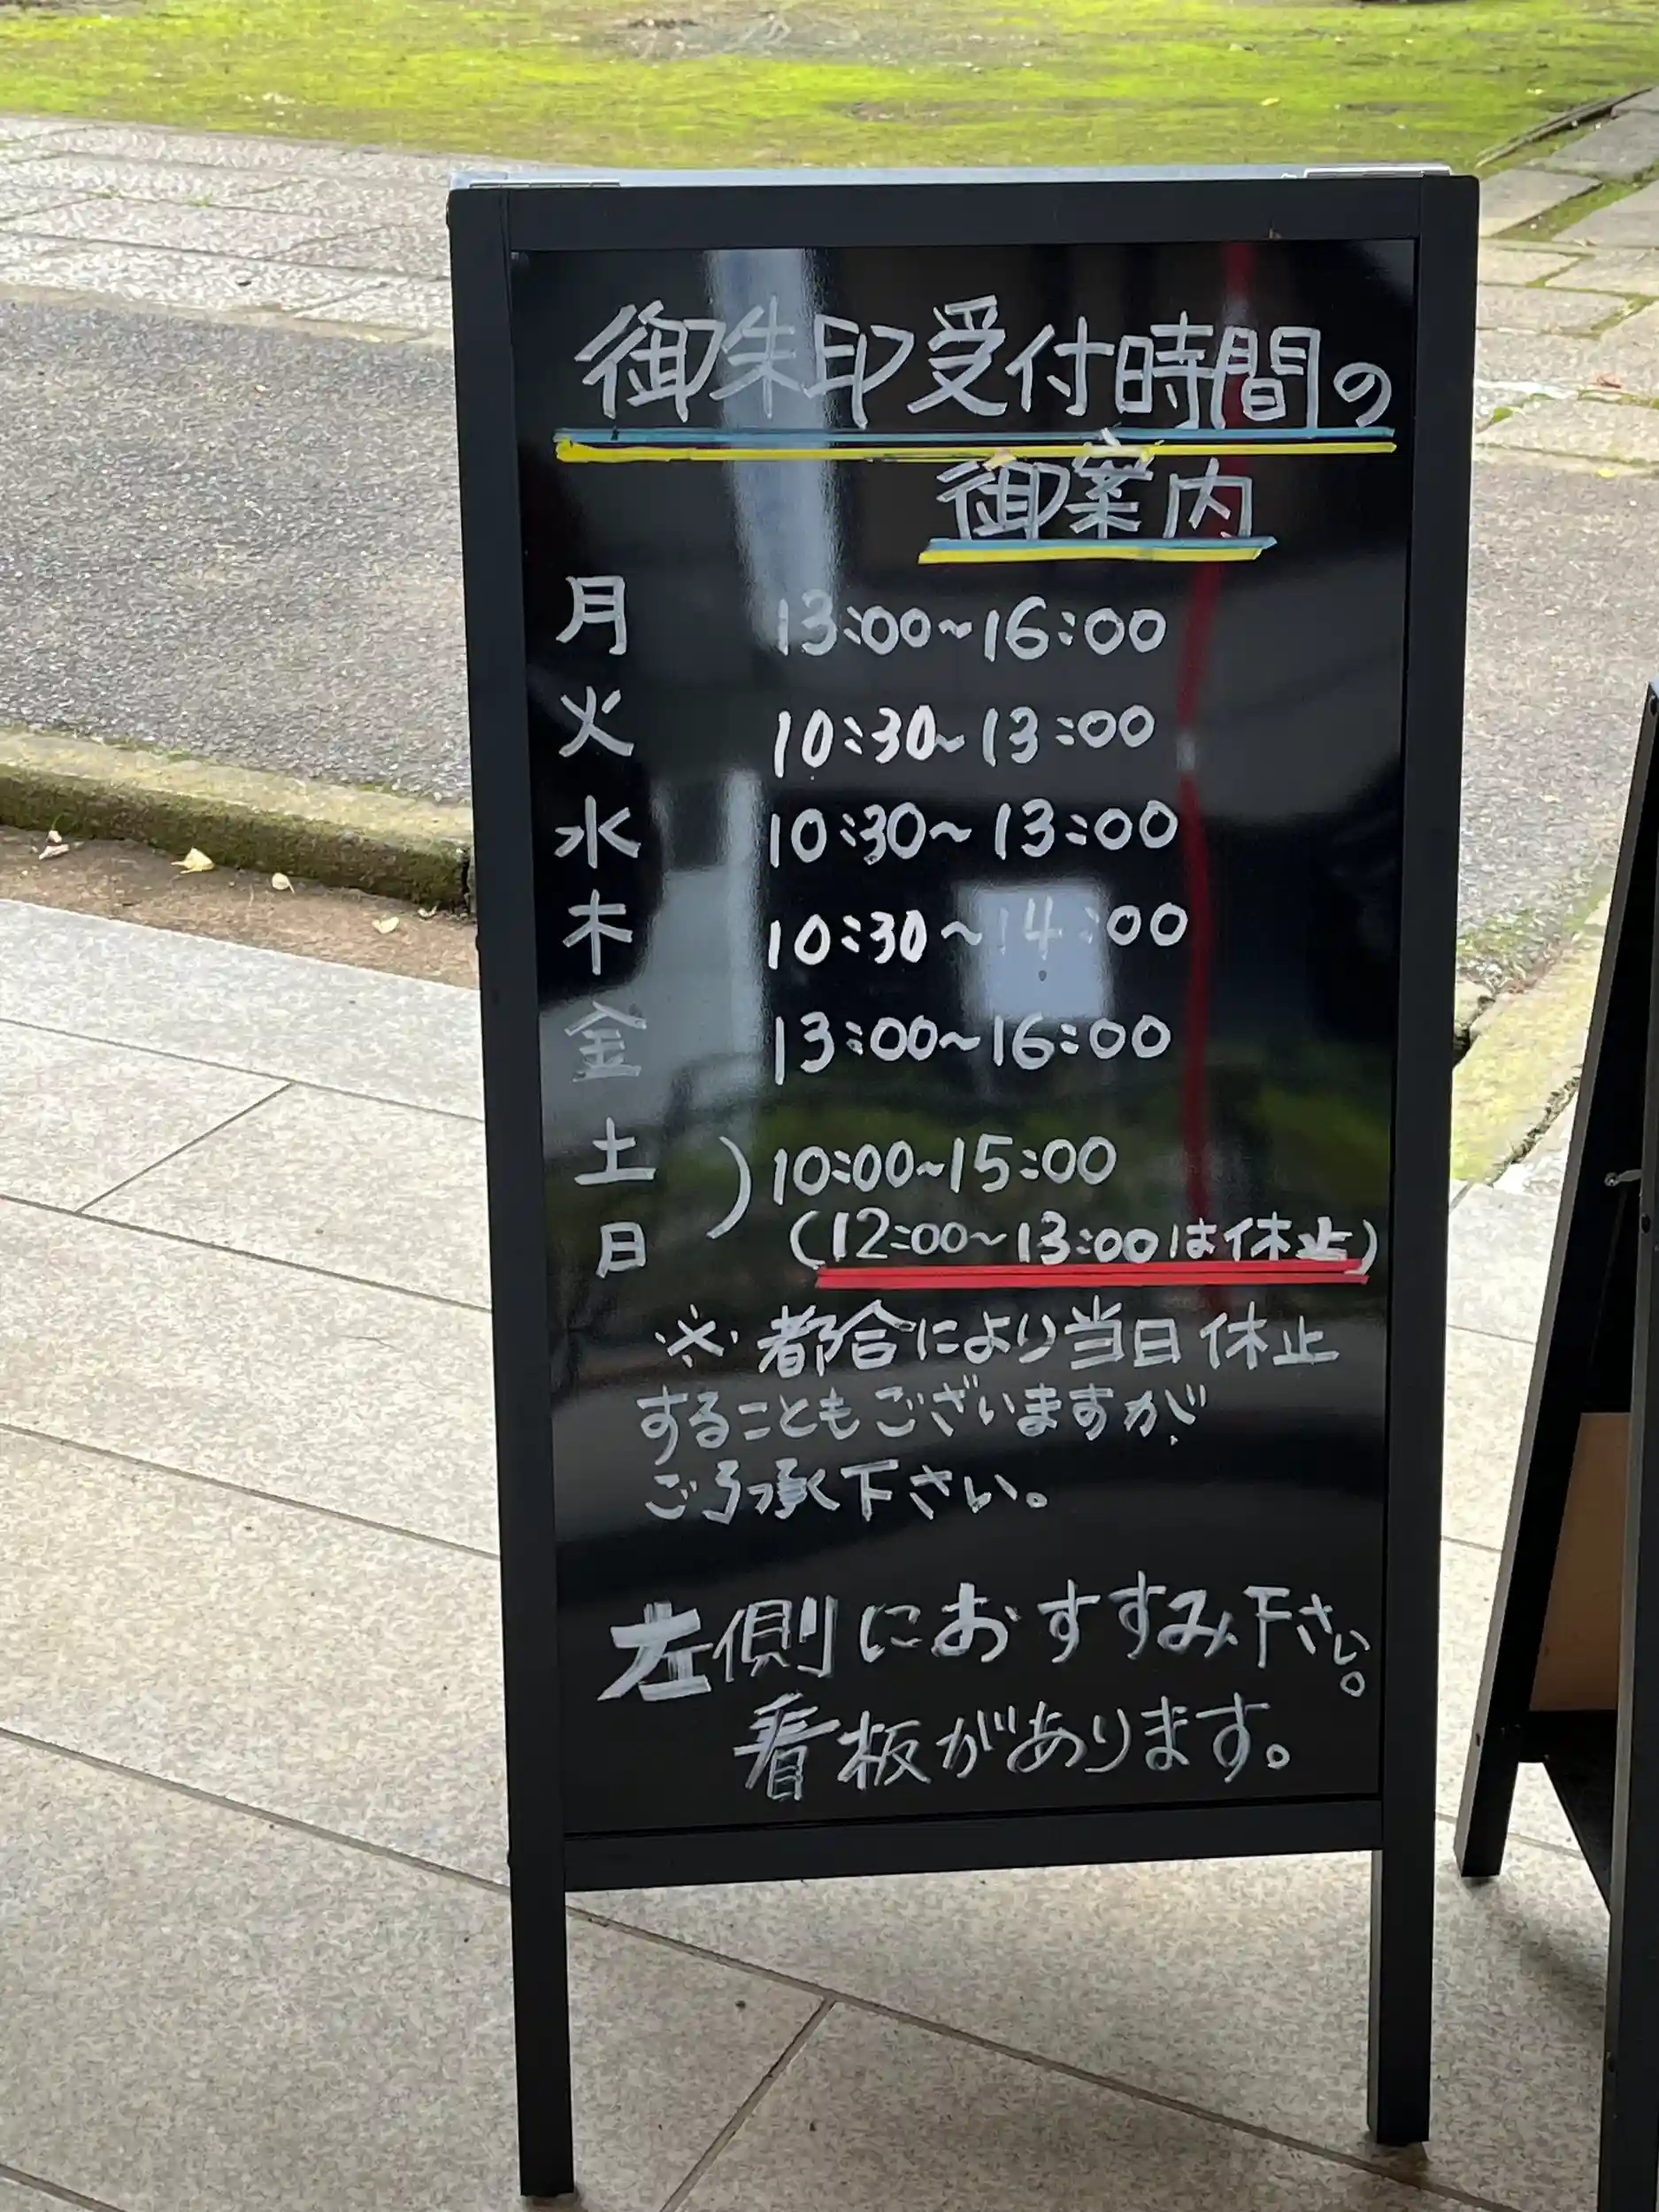 御朱印受付時間の
御案内
月 13:00~16:00
火 10:30~13:00
水 10:30~13:00
木 10:30~14:00
金 13:00~16:00
土
日 ) 10:00~15:00
(12:00~13:00は休止)
※都合により当日休止
することもございますが
ご了承下さい。
左側におすすみ下さい。
看板があります。